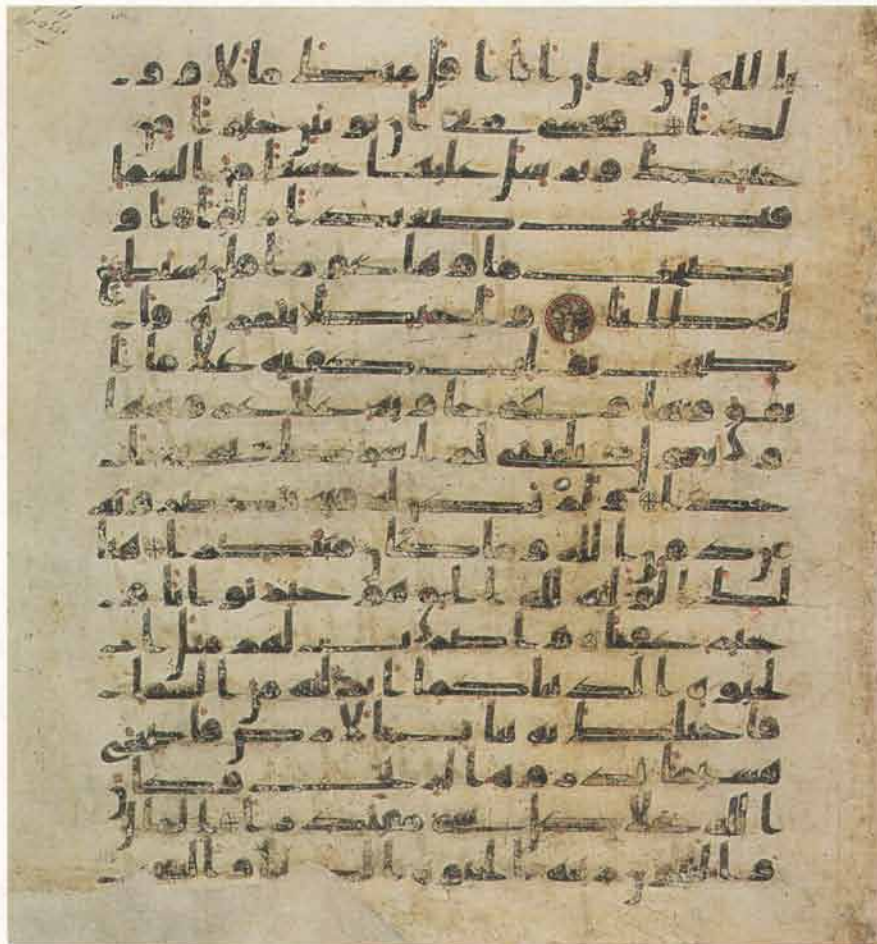 بالله ان ترن انا اقل منك مالا وو
لدا فعسى ربي ان يوتين خيرا من
جنتك ويرسل عليها حسبنا من السما
فتصبح صعيدا زلقا او
يصبح ماوها غورا فلن تستطيع
له طلبا واحيط بثمره فا
صبح يقلب كفيه علا ما ا
نفق فيها وهي خاوية علا عروشها
ويقول يليتني لم اشرك بربي ا
حدا ولم تكن له فية ينصرونه
من دون الله وما كان منتصرا هنا
لك الولية لله الحق هو خير ثوابا و
خير عقبا واضرب لهم مثل ا
لحيوة الدنيا كما انزلنه من السما
فاختلط به نبات الارض فاصبح
هشيما تذروه الريح وكان
الله علا كل شي مقتدرا المال
والبنون زينة الحيوة الدنيا والبـ